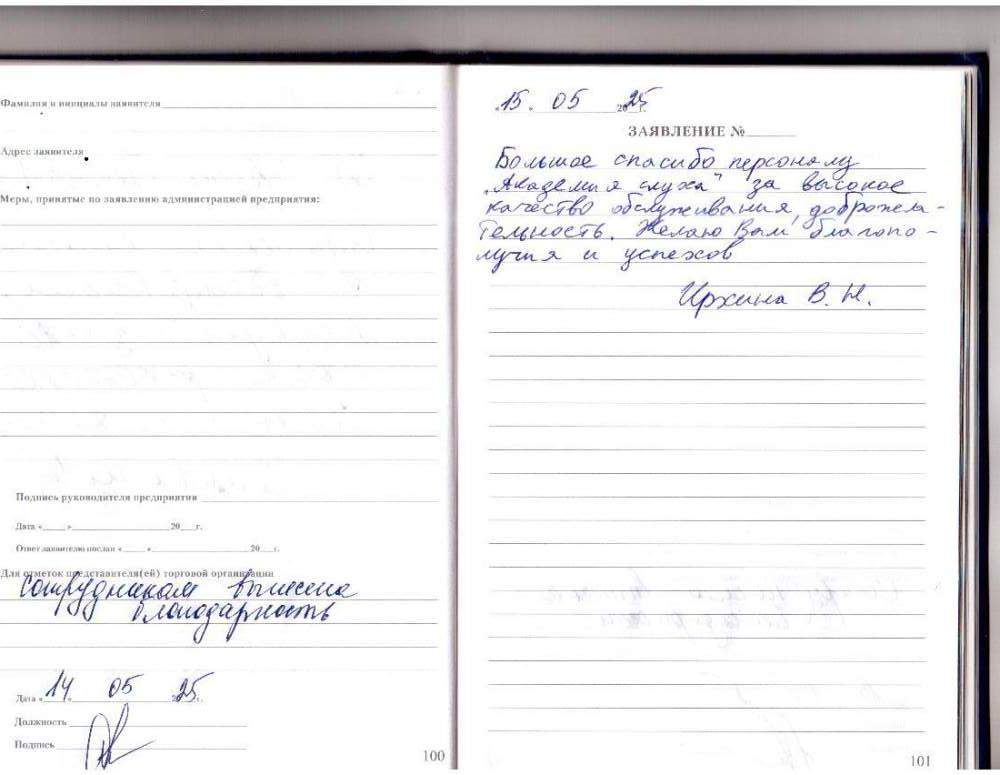 Фамилия и инициалы заявителя
Адрес заявителя
Меры, принятые по заявлению администрацией предприятия:
Подпись руководителя предприятия
Дата « » 20 г.
Ответ заявителю послан « » 20 г.
Для отметок представителя(ей) торговой организации
Сотрудникам вынесена
благодарность
Дата «14» 05 2025г.
Должность
Подпись
100
«15» 05 2025г.
ЗАЯВЛЕНИЕ №
Большое спасибо персоналу
„Академия слуха" за высокое
качество обслуживания, доброжела-
тельность. Желаю Вам благопо-
лучия и успехов
Ирхина В. Н.
101